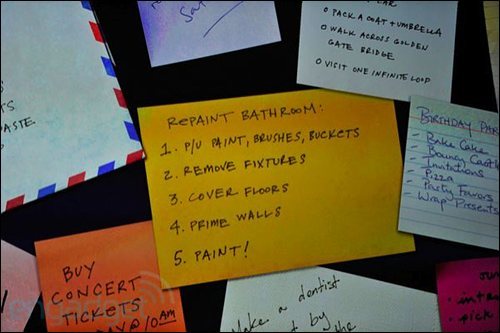 PACK A COAT + UMBRELLA
WALK ACROSS GOLDEN
GATE BRIDGE
VISIT ONE INFINITE LOOP
REPAINT BATHROOM:
1. P/U PAINT, BRUSHES, BUCKETS
2. REMOVE FIXTURES
3. COVER FLOORS
4. PRIME WALLS
5. PAINT!
BIRTHDAY
Bake Cake
Bouncy Castle
Invitations
Pizza
Party Favors
Wrap Presents
BUY
CONCERT
TICKETS
@ 10AM
engadget
Make a dentist
by the